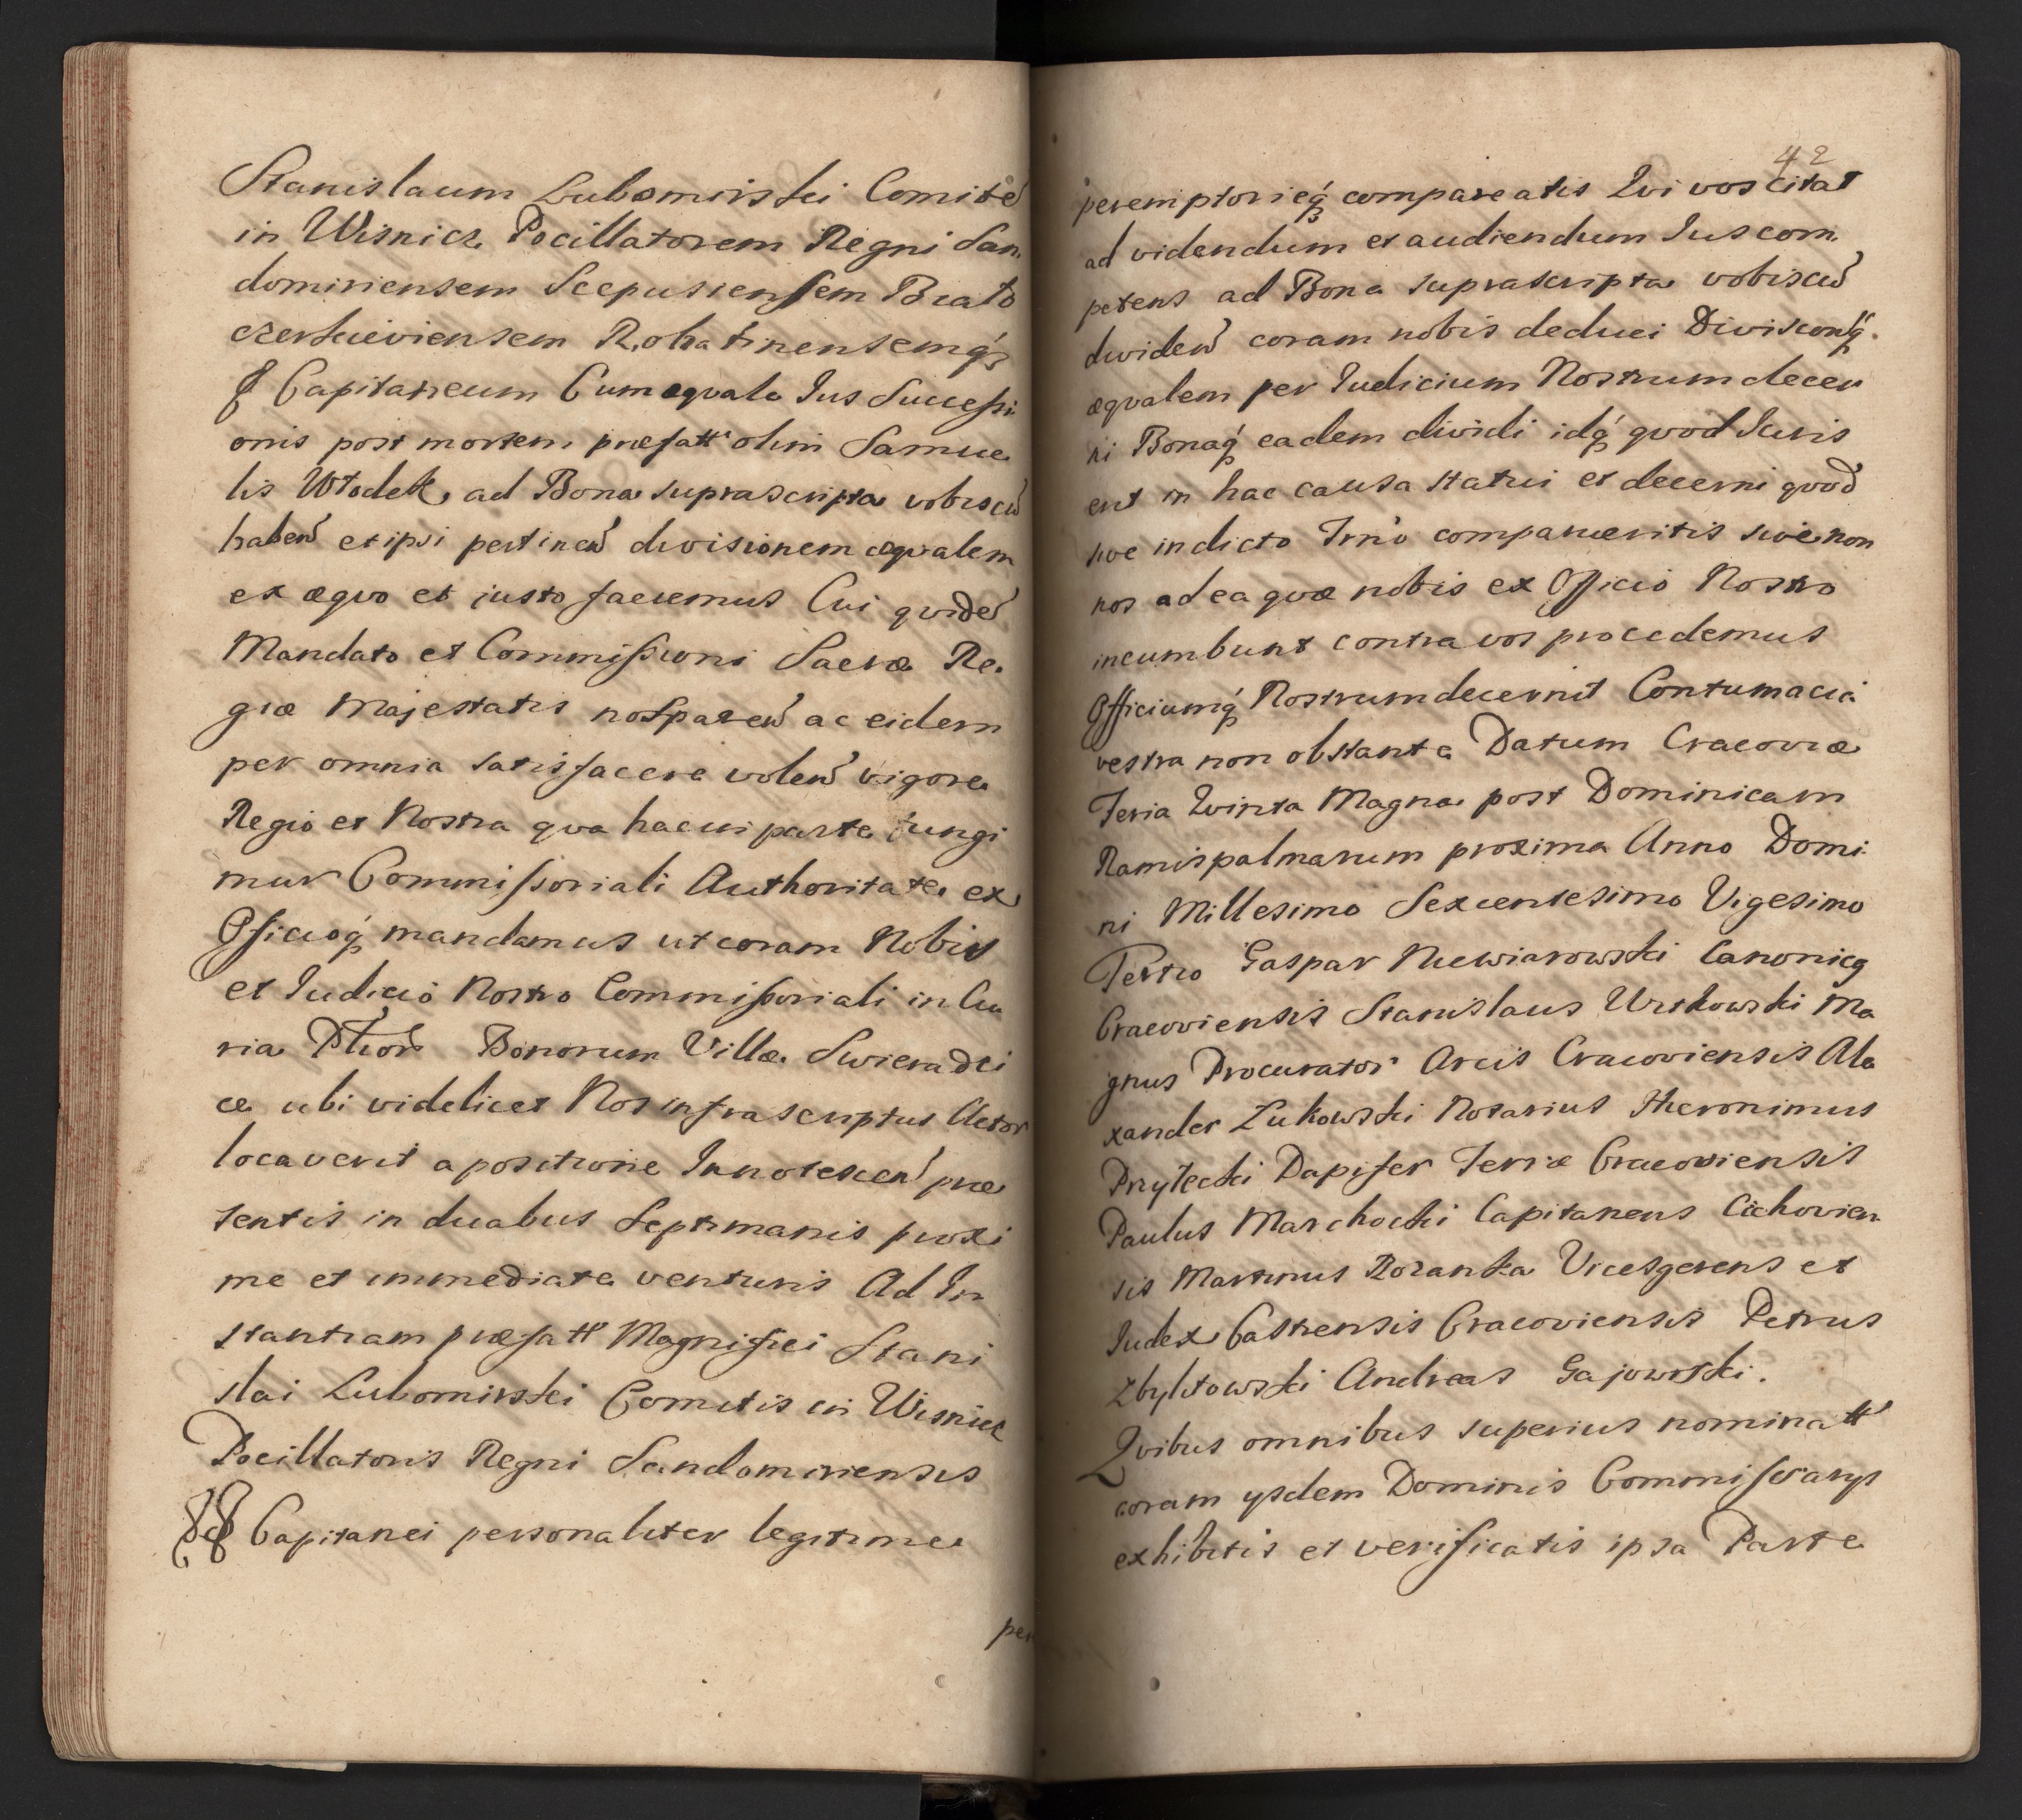 Stanislaum Lubomirski Comite
in Wisnicz Pocillatorem Regni San.
domiriensem Scepusiensem Biało
czerkieviensem Rohatinensemq́
& Capitaneum Cum æquale Ius Successi
onis post mortem præfatt olim Samue
lis Włodek ad Bona suprascripta vobiscu
haben et ipsi pertinen divisionem æqualem
ex æquo et iusto faceremus Cui quide
Mandato et Commissioni Sacræ Re.
giæ Majestatis nos paren ac eidem
per omnia satisfacere volen vigore
Regio et Nostra qua hac in parte fungi
mur Commissoriali Authoritate ex
Officioq́ mandamus ut coram Nobis
et Iudicio Nostro Commissoriali in Cu
ria Bonorum Villæ Swieradzi
ce ubi videlicet Nos infrascriptus Actor
locaverit a positione Innotescen præ
sentis in duabus Septimanis proxi
me et immediate venturis Ad In
stantiam præfatt Magnifici Stani
slai Lubomirski Comitis in Wisnicz
Pocillatoris Regni Sandomiriensis
&& Capitanei personaliter legitime
per
42
peremptorieq́ compareatis Qvi vos citat
ad videndum et audiendum Ius com
petens ad Bona suprascripta vobiscu
dividen coram nobis deduci Divisionq́.
æqualem per Iudicium Nostrum decer
ni Bonaq́ eadem dividi idq́ quod Iuris
erit in hac causa statui et decerni quod
sive in dicto Trno comparueritis sive non
nos ad ea quæ nobis ex Officio Nostro
incumbunt contra vos procedemus
Officiumq́ Nostrum decernet Contumacia
vestra non obstante Datum Cracoviæ
Feria Qvinta Magna post Dominicam
Ramispalmarum proxima Anno Domi
ni Millesimo Sexcentesimo Vigesimo
Tertio Gaspar Niewiarowski Canonicq
Cracoviensis Stanislaus Witkowski Ma
gnus Procurator Arcis Cracoviensis Ale
xander Łukowski Notarius Hieronimus
Przyłecki Dapifer Terræ Cracoviensis
Paulus Marchocki Capitaneus Cichovien
sis Martinus Rozanka Vicesgerens et
Iudex Castrensis Cracoviensis Petrus
Zbylitowski Andreas Gajowski.
Qvibus omnibus superius nominatt
coram ysdem Dominis Commissarys
exhibitis et verificatis ipsa Parte